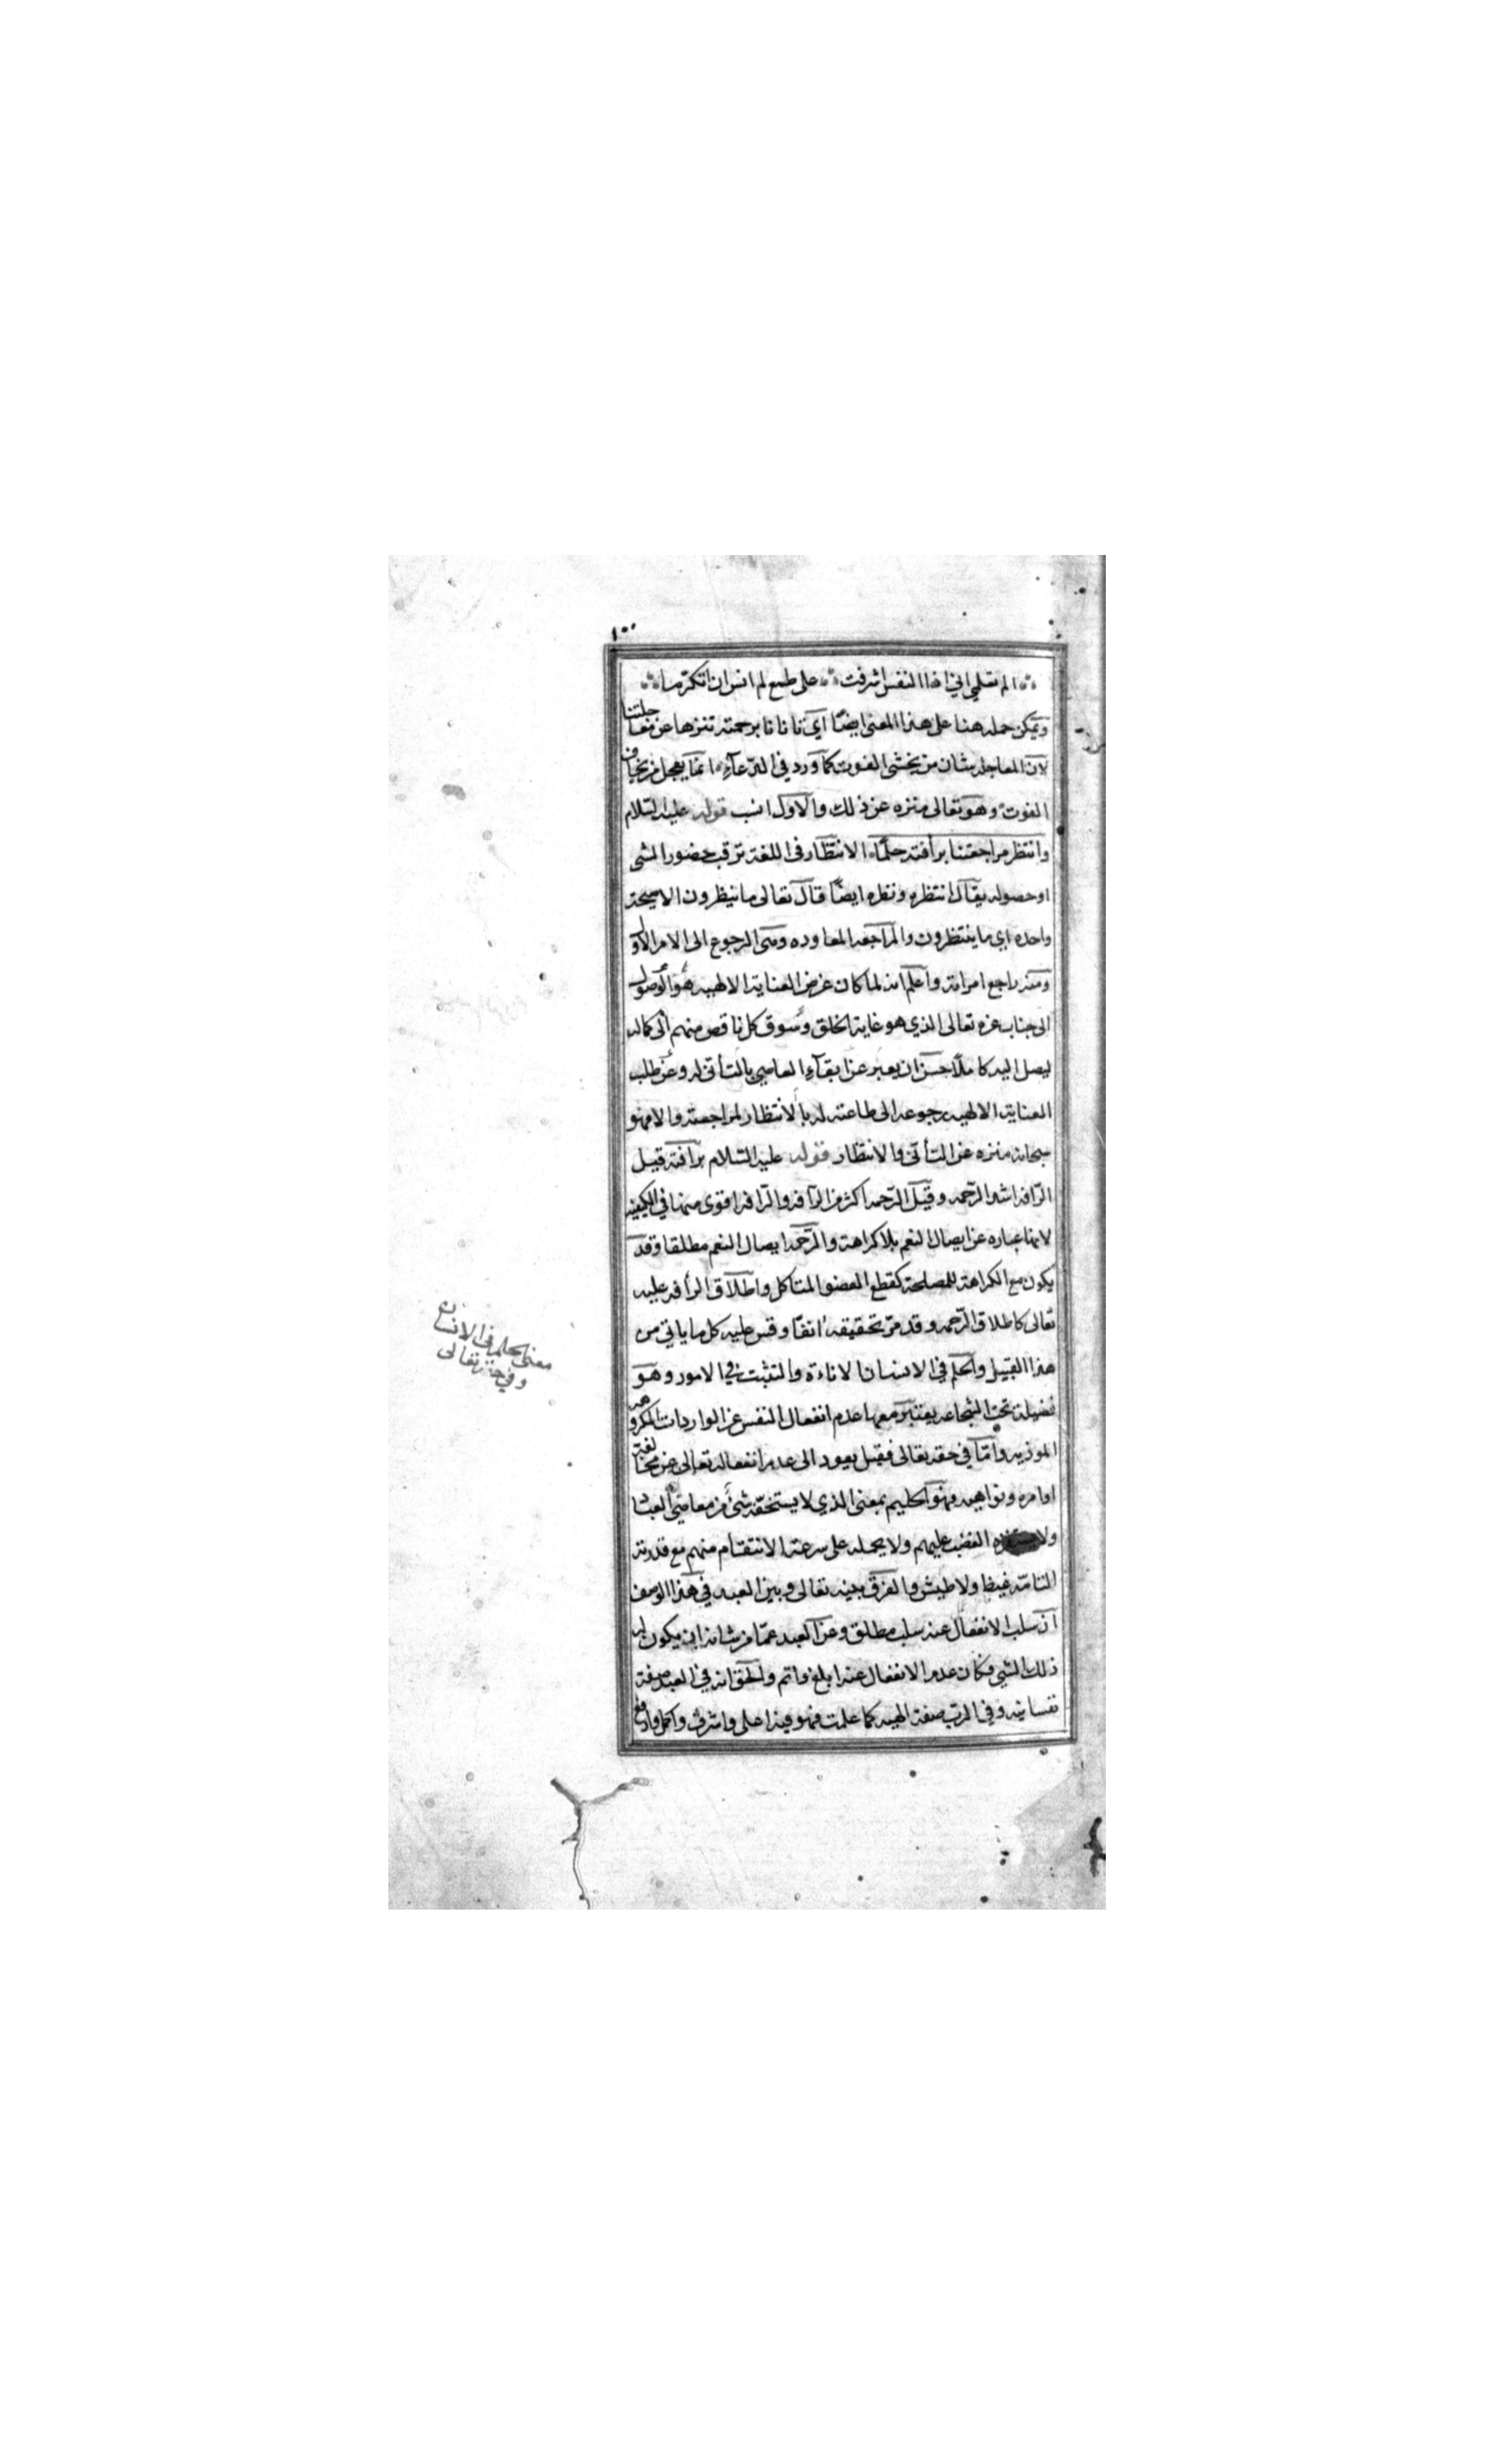 ١٠٠
الم تعلمي اني اذا النفس اشرفت على طمع لم انس ان اتكرما
ويمكن حمله هنا على هذا المعنى ايضًا اي تانانا برحمته تنزها عن معاجلتنا
لان المعاجله شان من يخشى الفوت كما ورد في الدعآء انما يعجل من يخاف
الفوت وهو تعالى منزه عن ذلك والاول انسب قوله عليه السلام
وانتظر مراجعتنا برأفته حلمًا الانتظار فى اللغة ترقب حضور الشى
او حصوله يقال انتظره ونظره ايضًا قال تعالى ما ينظرون الا صيحة
واحده اي ما ينتظرون والمراجعه المعاوده وهى الرجوع الى الامر الاول
ومنه راجع امراته واعلم انه لما كان غرض العناية الالهيه هو الوصول
الى جناب عزه تعالى الذي هو غاية الخلق وسوق كل ناقص منهم الى كماله
ليصل اليه كاملًا حسن ان يعبر عن ابقآء العاصي بالتأنى له وعن طلب
العناية الالهيه رجوعه الى طاعته له بالانتظار لمراجعته والا فهو
سبحانه منزه عن التأنى والانتظار قوله عليه السلام برأفته قيل
الرافه اشد الرحمه وقيل الرحمه اكثر من الرآفه والرافه اقوى منها في الكيفيه
لانها عباره عن ايصال النعم بلا كراهة والرحمه ايصال النعم مطلقا وقد
يكون مع الكراهة للمصلحة كقطع العضو المتاكل واطلاق الرأفه عليه
تعالى كاطلاق الرحمه وقد مر تحقيقه انفًا وقس عليه كل ما ياتي من
هذا القبيل والحلم في الانسان الاناءة والتثبت في الامور وهو
فضيلة تحت الشجاعه يعتبر معها عدم انفعال النفس عن الواردات المكروهه
الموذيه وامّا في حقه تعالى فقيل يعود الى عدم انفعاله تعالى عن مخالفة
اوامره ونواهيه فهو الحليم بمعنى الذي لا يستخفه شئ من معاصي العباد
ولا الغضب عليهم ولا يحمله على سرعة الانتقام منهم مع قدرته
التامه غيظ ولا طيش والفرق بينه تعالى وبين العبد في هذا الوصف
ان سلب الانفعال عنه سلب مطلق وعن العبد عمّا من شانه ان يكون له
ذلك الشي فكان عدم الانفعال عنه ابلغ واتم والحق انه في العبد صفة
نفسانيه وفي الرب صفة الهيه كما علمت فهو فيه اعلى واشرف واكمل وارفع
معنى الحلم في الانسان
وفي حقه تعالى